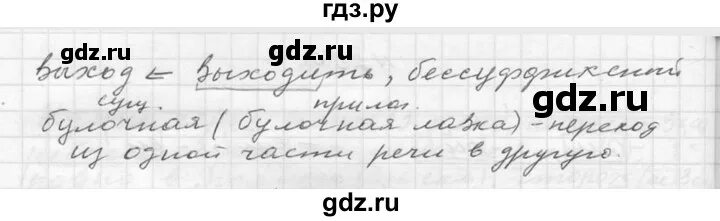 гдз.ру
gdz.ru gdz.ru
выход ← выходить, бессуффиксный
сущ. прилаг.
булочная (булочная лавка) - переход
из одной части речи в другую.
gdz.ru gdz.ru